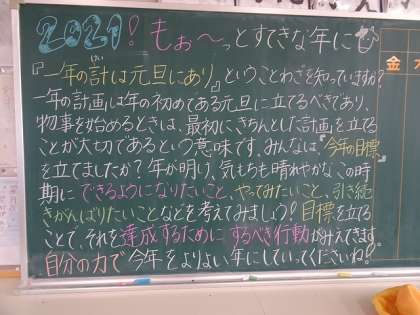 2021! もぉ〜っとすてきな年に
『一年の計は元旦にあり』ということわざを知っていますか?
一年の計画は年の初めである元旦に立てるべきであり、
物事を始めるときは、最初にきちんとした計画を立てる
ことが大切であるという意味です。みんなは『今年の目標』
を立てましたか?年が明け、気もちも晴れやかな、この時
期に できるようになりたいこと、やってみたいこと、引き続
きがんばりたいことなどを考えてみましょう!目標を立てる
ことで、それを達成するために するべき行動がみえてきます。
自分の力で今年をよりよい年にしていってくださいね!
金